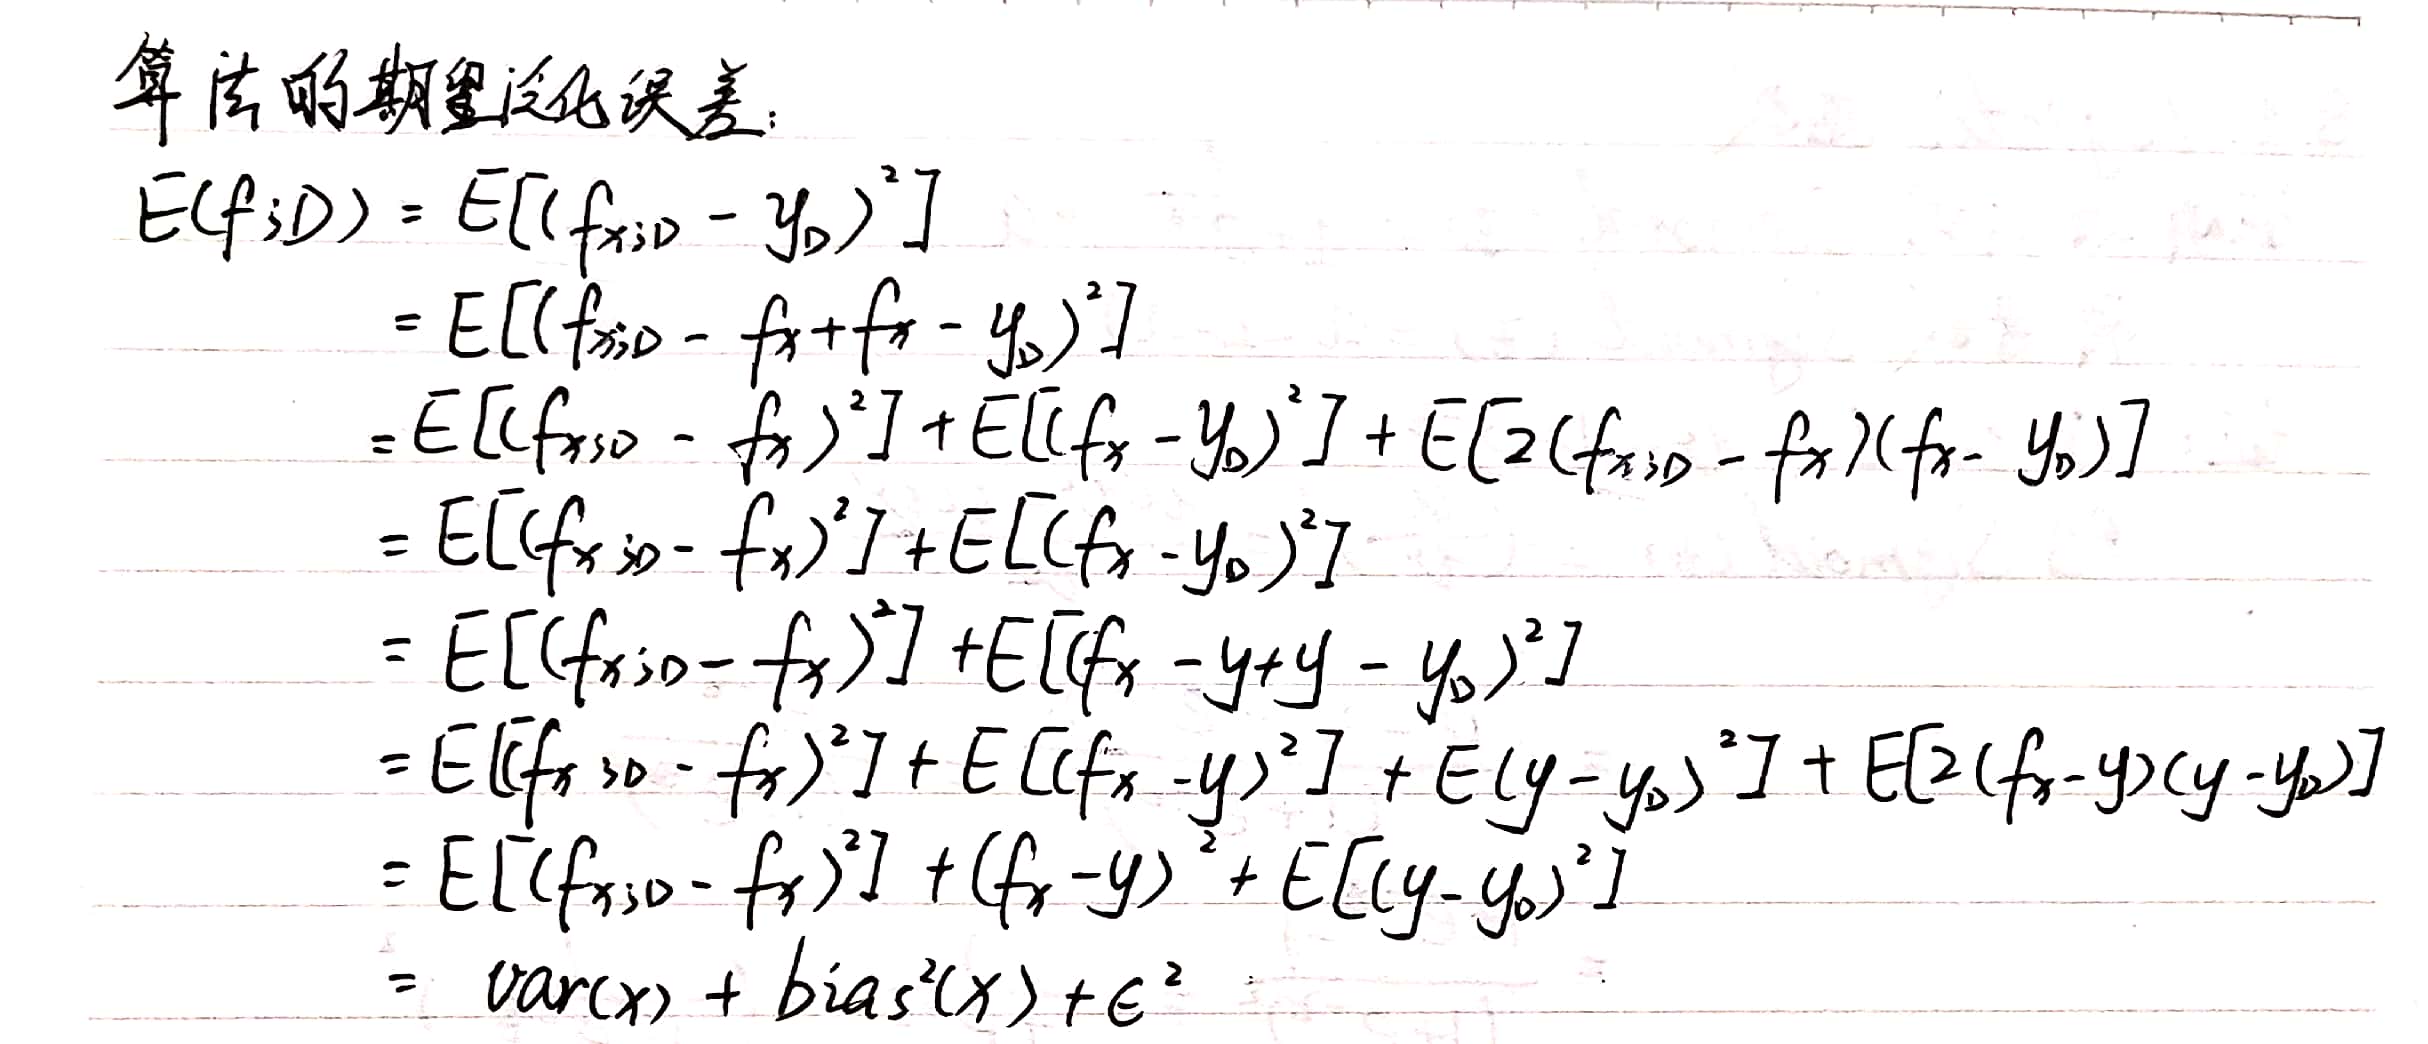 算法的期望泛化误差:
E(f;D) = E[(fx;D - yD)²]
= E[(fx;D - fx + fx - yD)²]
= E[(fx;D - fx)²] + E[(fx - yD)²] + E[2(fx;D - fx)(fx - yD)]
= E[(fx;D - fx)²] + E[(fx - yD)²]
= E[(fx;D - fx)²] + E[(fx - y + y - yD)²]
= E[(fx;D - fx)²] + E[(fx - y)²] + E(y - yD)²] + E[2(fx - y)(y - yD)]
= E[(fx;D - fx)²] + (fx - y)² + E[(y - yD)²]
= var(x) + bias²(x) + ϵ²